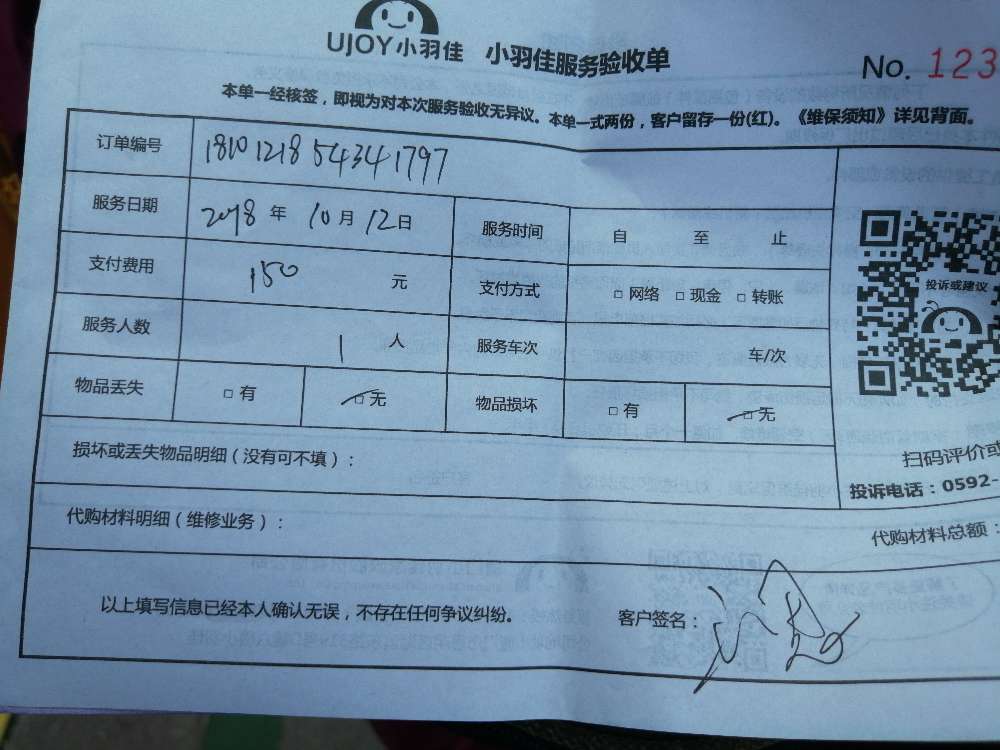 UJOY小羽佳 小羽佳服务验收单
No. 123
本单一经核签，即视为对本次服务验收无异议。本单一式两份，客户留存一份(红)。《维保须知》详见背面。
订单编号 1810121854341797
服务日期 2018 年 10 月 12 日 服务时间 自 至 止
支付费用 150 元 支付方式 □ 网络 □ 现金 □ 转账
服务人数 1 人 服务车次 车/次
物品丢失 □ 有 □ 无 物品损坏 □ 有 □ 无
投诉或建议
损坏或丢失物品明细（没有可不填）：
扫码评价或
投诉电话：0592-
代购材料明细（维修业务）：
代购材料总额：
以上填写信息已经本人确认无误，不存在任何争议纠纷。 客户签名：